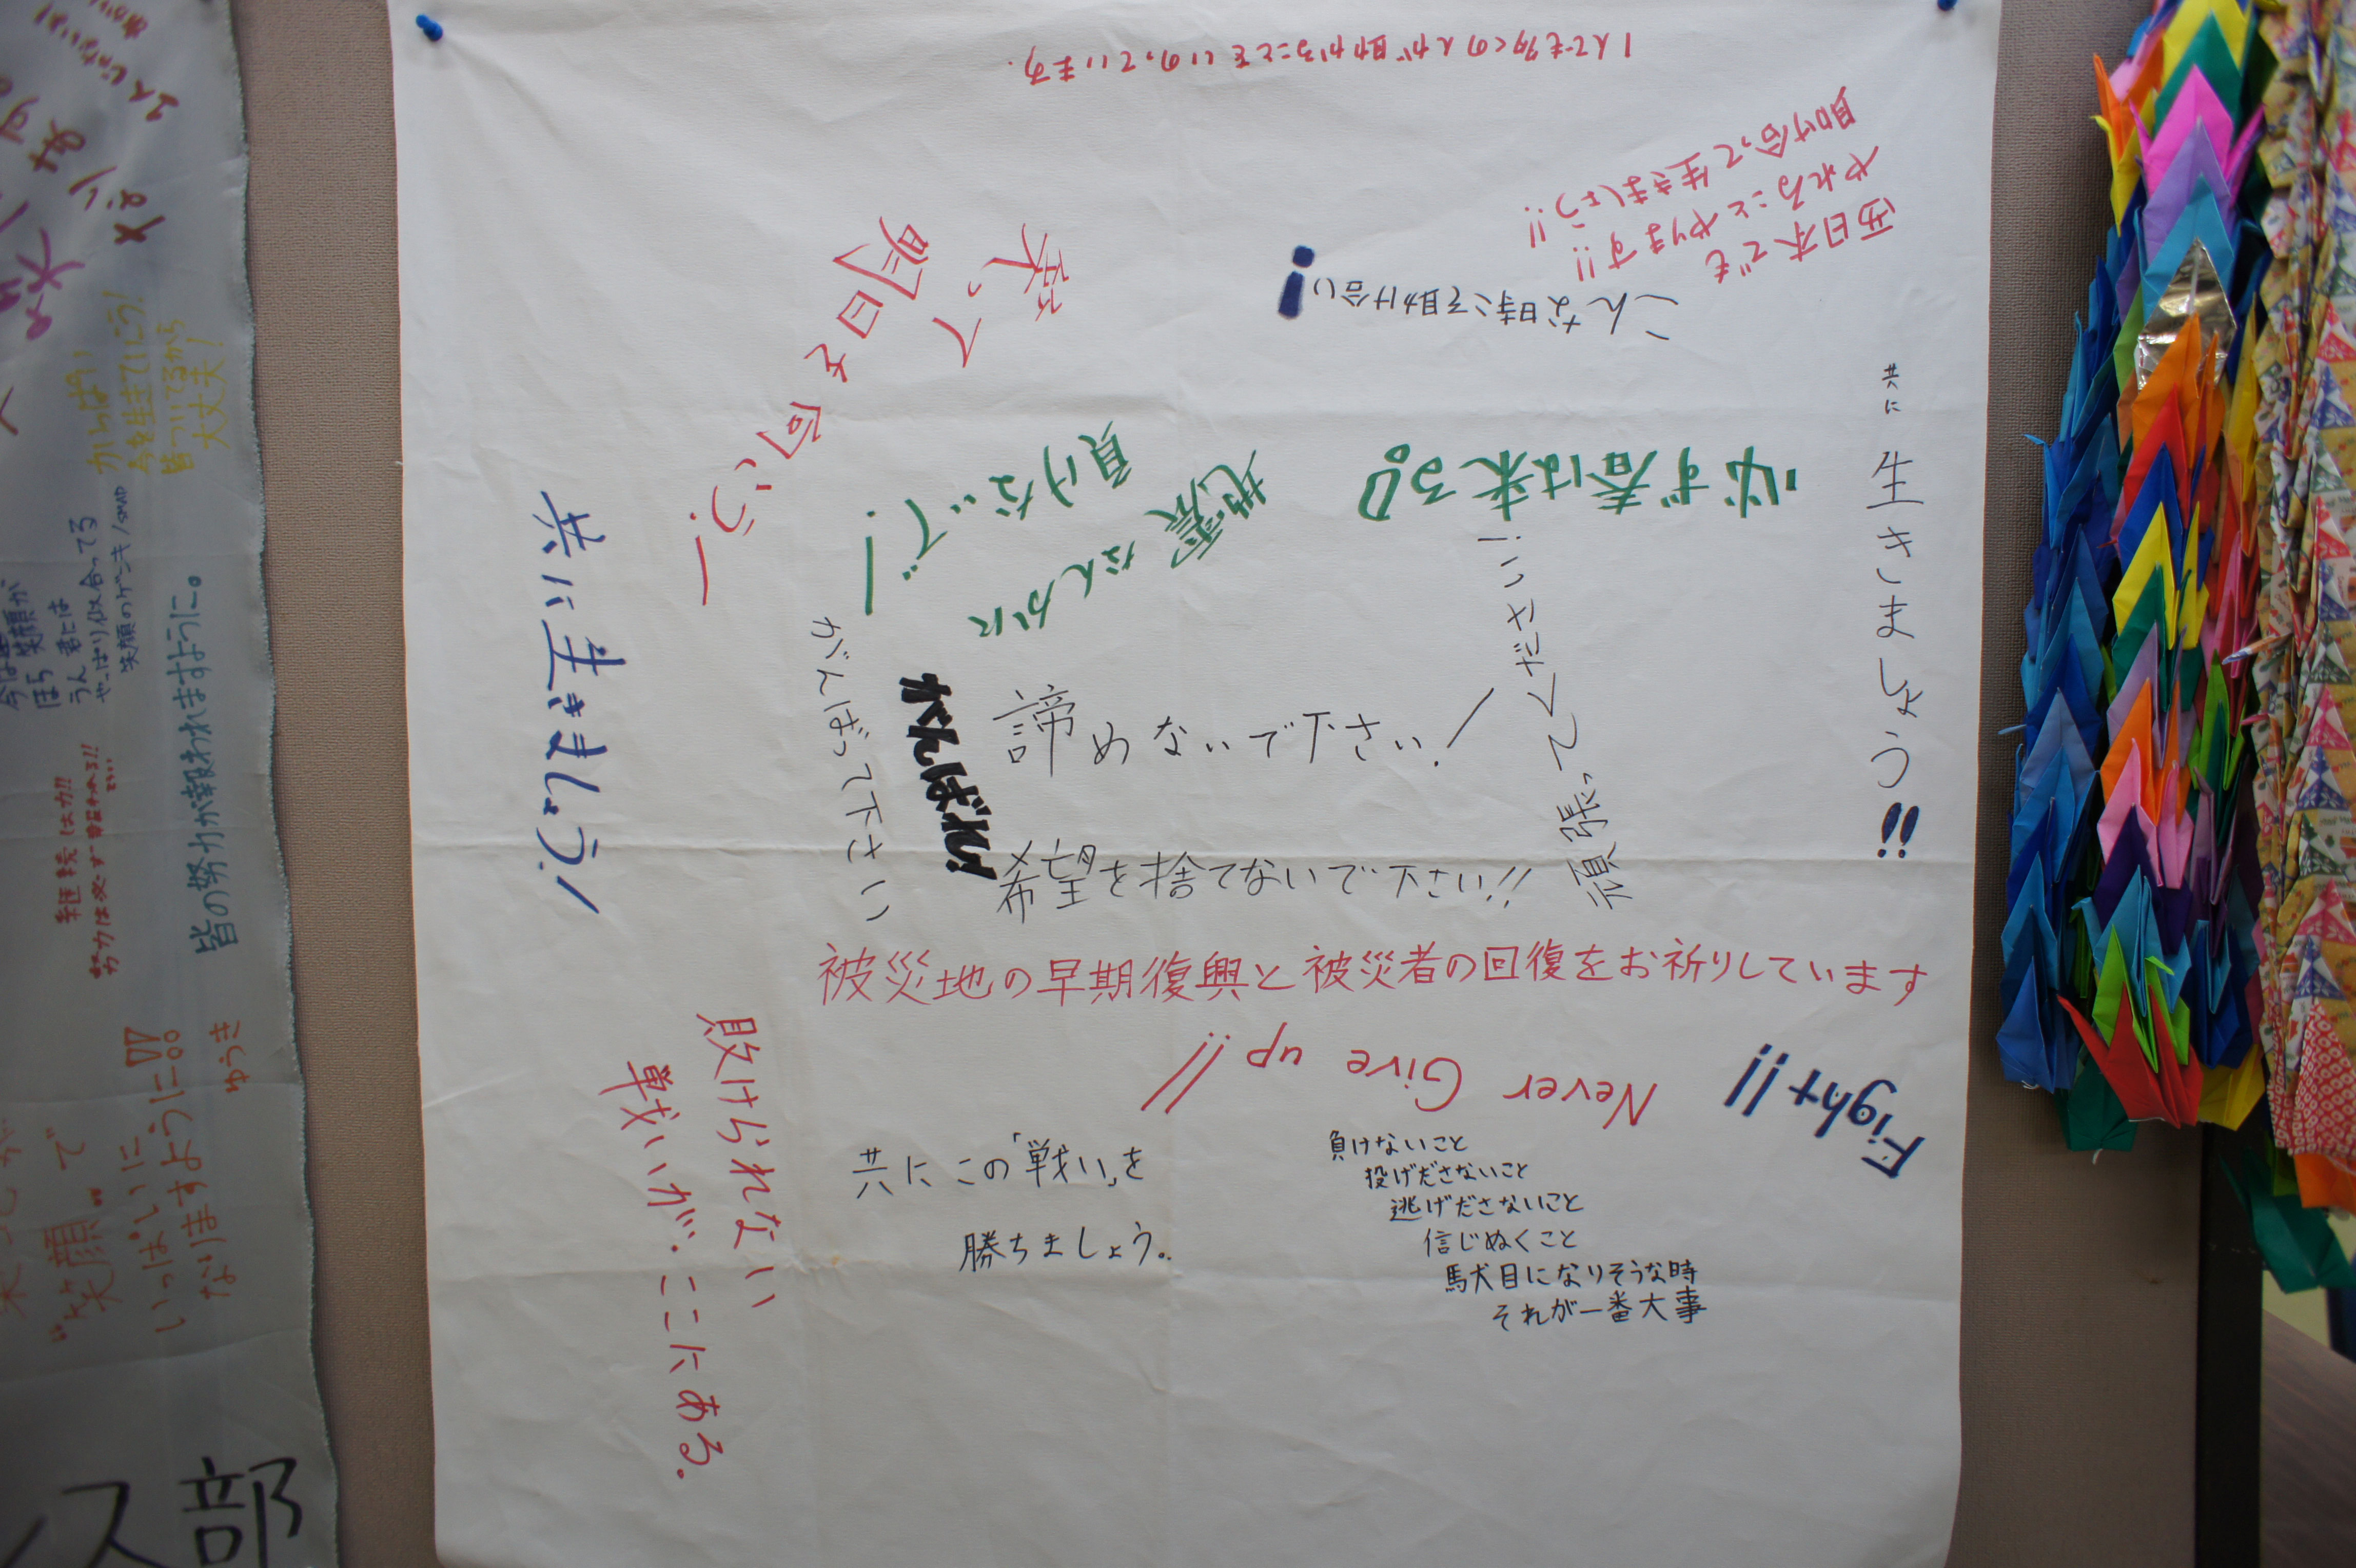 1人でも多くの人が助かることをいのっています。
西日本でも
やれることやります!!
助け合って生きましょう!!
こんな時こそ助け合い!
笑って
明日を
向こう!
共に
生きましょう!!
必ず春は来る。
地震なんかに
負けないで!
共に生きましょう!
がんばって下さい
がんばれ!
諦めないで下さい!
頑張ってください!
希望を捨てないで下さい!!
被災地の早期復興と被災者の回復をお祈りしています
Never Give up!!
Fight!!
敗けられない
戦いが、ここにある。
共にこの「戦い」を
勝ちましょう。
負けないこと
投げださないこと
逃げださないこと
信じぬくこと
駄目になりそうな時
それが一番大事
がんばれ!
今を生きていこう!
皆ついてるから
大丈夫!
ほら笑顔が
うん君には
やっぱり似合ってる
皆の努力が報われますように。
継続は力!!
努力は必ず報われる!!
"笑顔"で
いっぱいに
なりますように!!
ゆうき
ス部